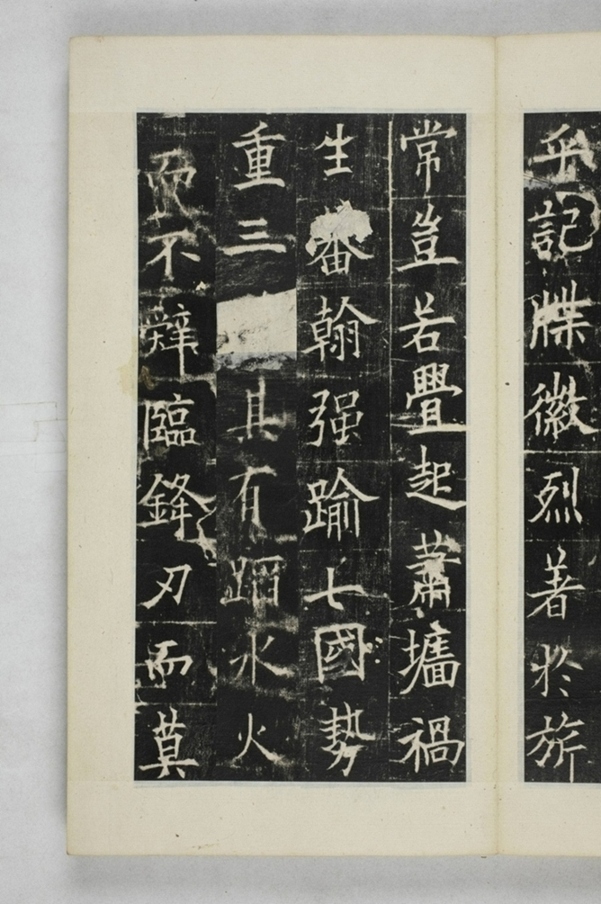 乎記牒徽烈著於旂
常豈若疊起蕭墻禍
生蕃翰强踰七國勢
重三其有蹈水火
而不辭臨鋒刃而莫